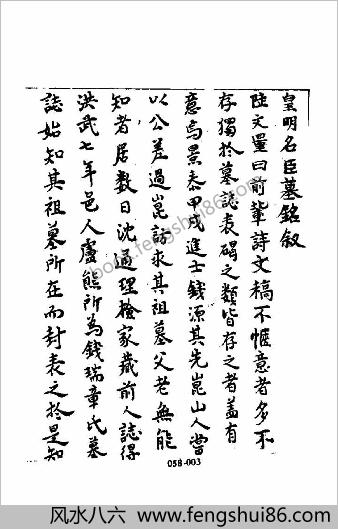 皇明名臣墓銘叙
陸文量曰前輩詩文稿不惬意者多不
存獨於墓誌表碣之類皆存之者蓋有
意焉景泰甲戌進士錢源其先崑山人嘗
以公差過崑訪求其祖墓父老無能
知者居數日沈通理檢家藏前人誌得
洪武七年邑人盧熊所為錢瑞章氏墓
誌始知其祖墓所在而封表之於是知
book.fengshui86.com
058-003
风水八六 - fengshui86.com